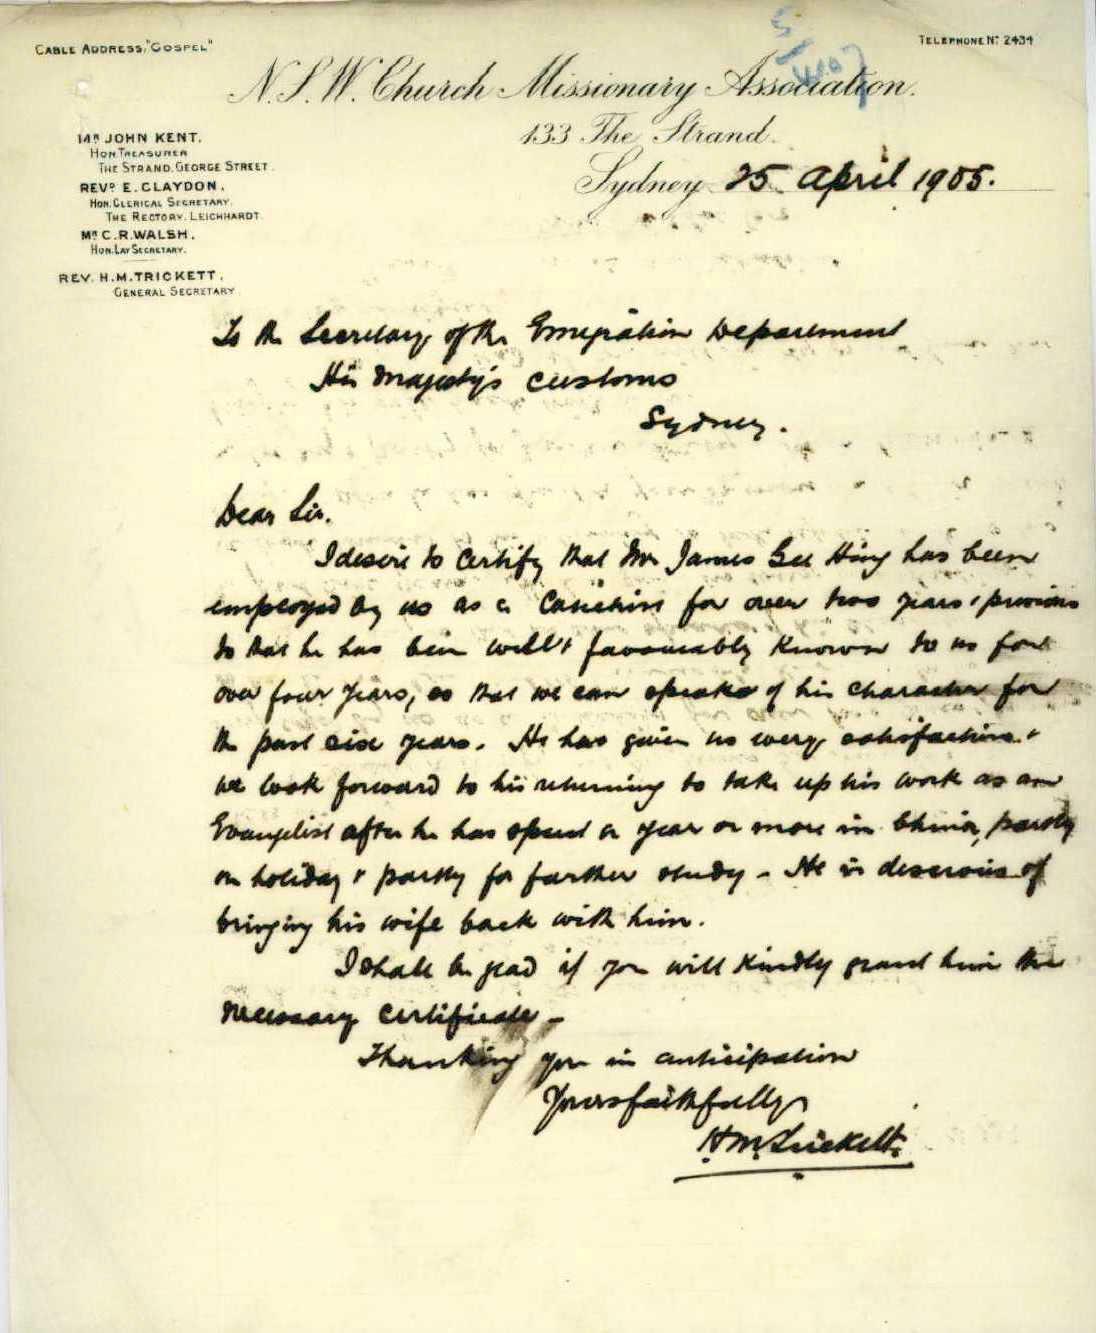 CABLE ADDRESS, "GOSPEL"
TELEPHONE No. 2434
N.S.W. Church Missionary Association.
133 The Strand.
Sydney 25 April 1905.
MR JOHN KENT.
HON. TREASURER
THE STRAND. GEORGE STREET.
REVD. E. CLAYDON.
HON. CLERICAL SECRETARY.
THE RECTORY. LEICHHARDT.
MR C. R. WALSH.
HON. LAY SECRETARY.
REV. H. M. TRICKETT.
GENERAL SECRETARY
To the Secretary of the Emigration Department
His Majesty's Customs
Sydney.
Dear Sir.
I desire to certify that Mr James Gee Hing has been
employed by us as a Catechist for over two years & previous
to that he has been well & favourably known to us for
over four years, so that we can speak of his character for
the past six years. He has given us every satisfaction &
we look forward to his returning to take up his work as an
Evangelist after he has spent a year or more in China, partly
on holiday & partly for further study - He is desirous of
bringing his wife back with him.
I shall be glad if you will kindly grant him the
necessary certificate -
Thanking you in anticipation
Yours faithfully
H. M. Trickett.